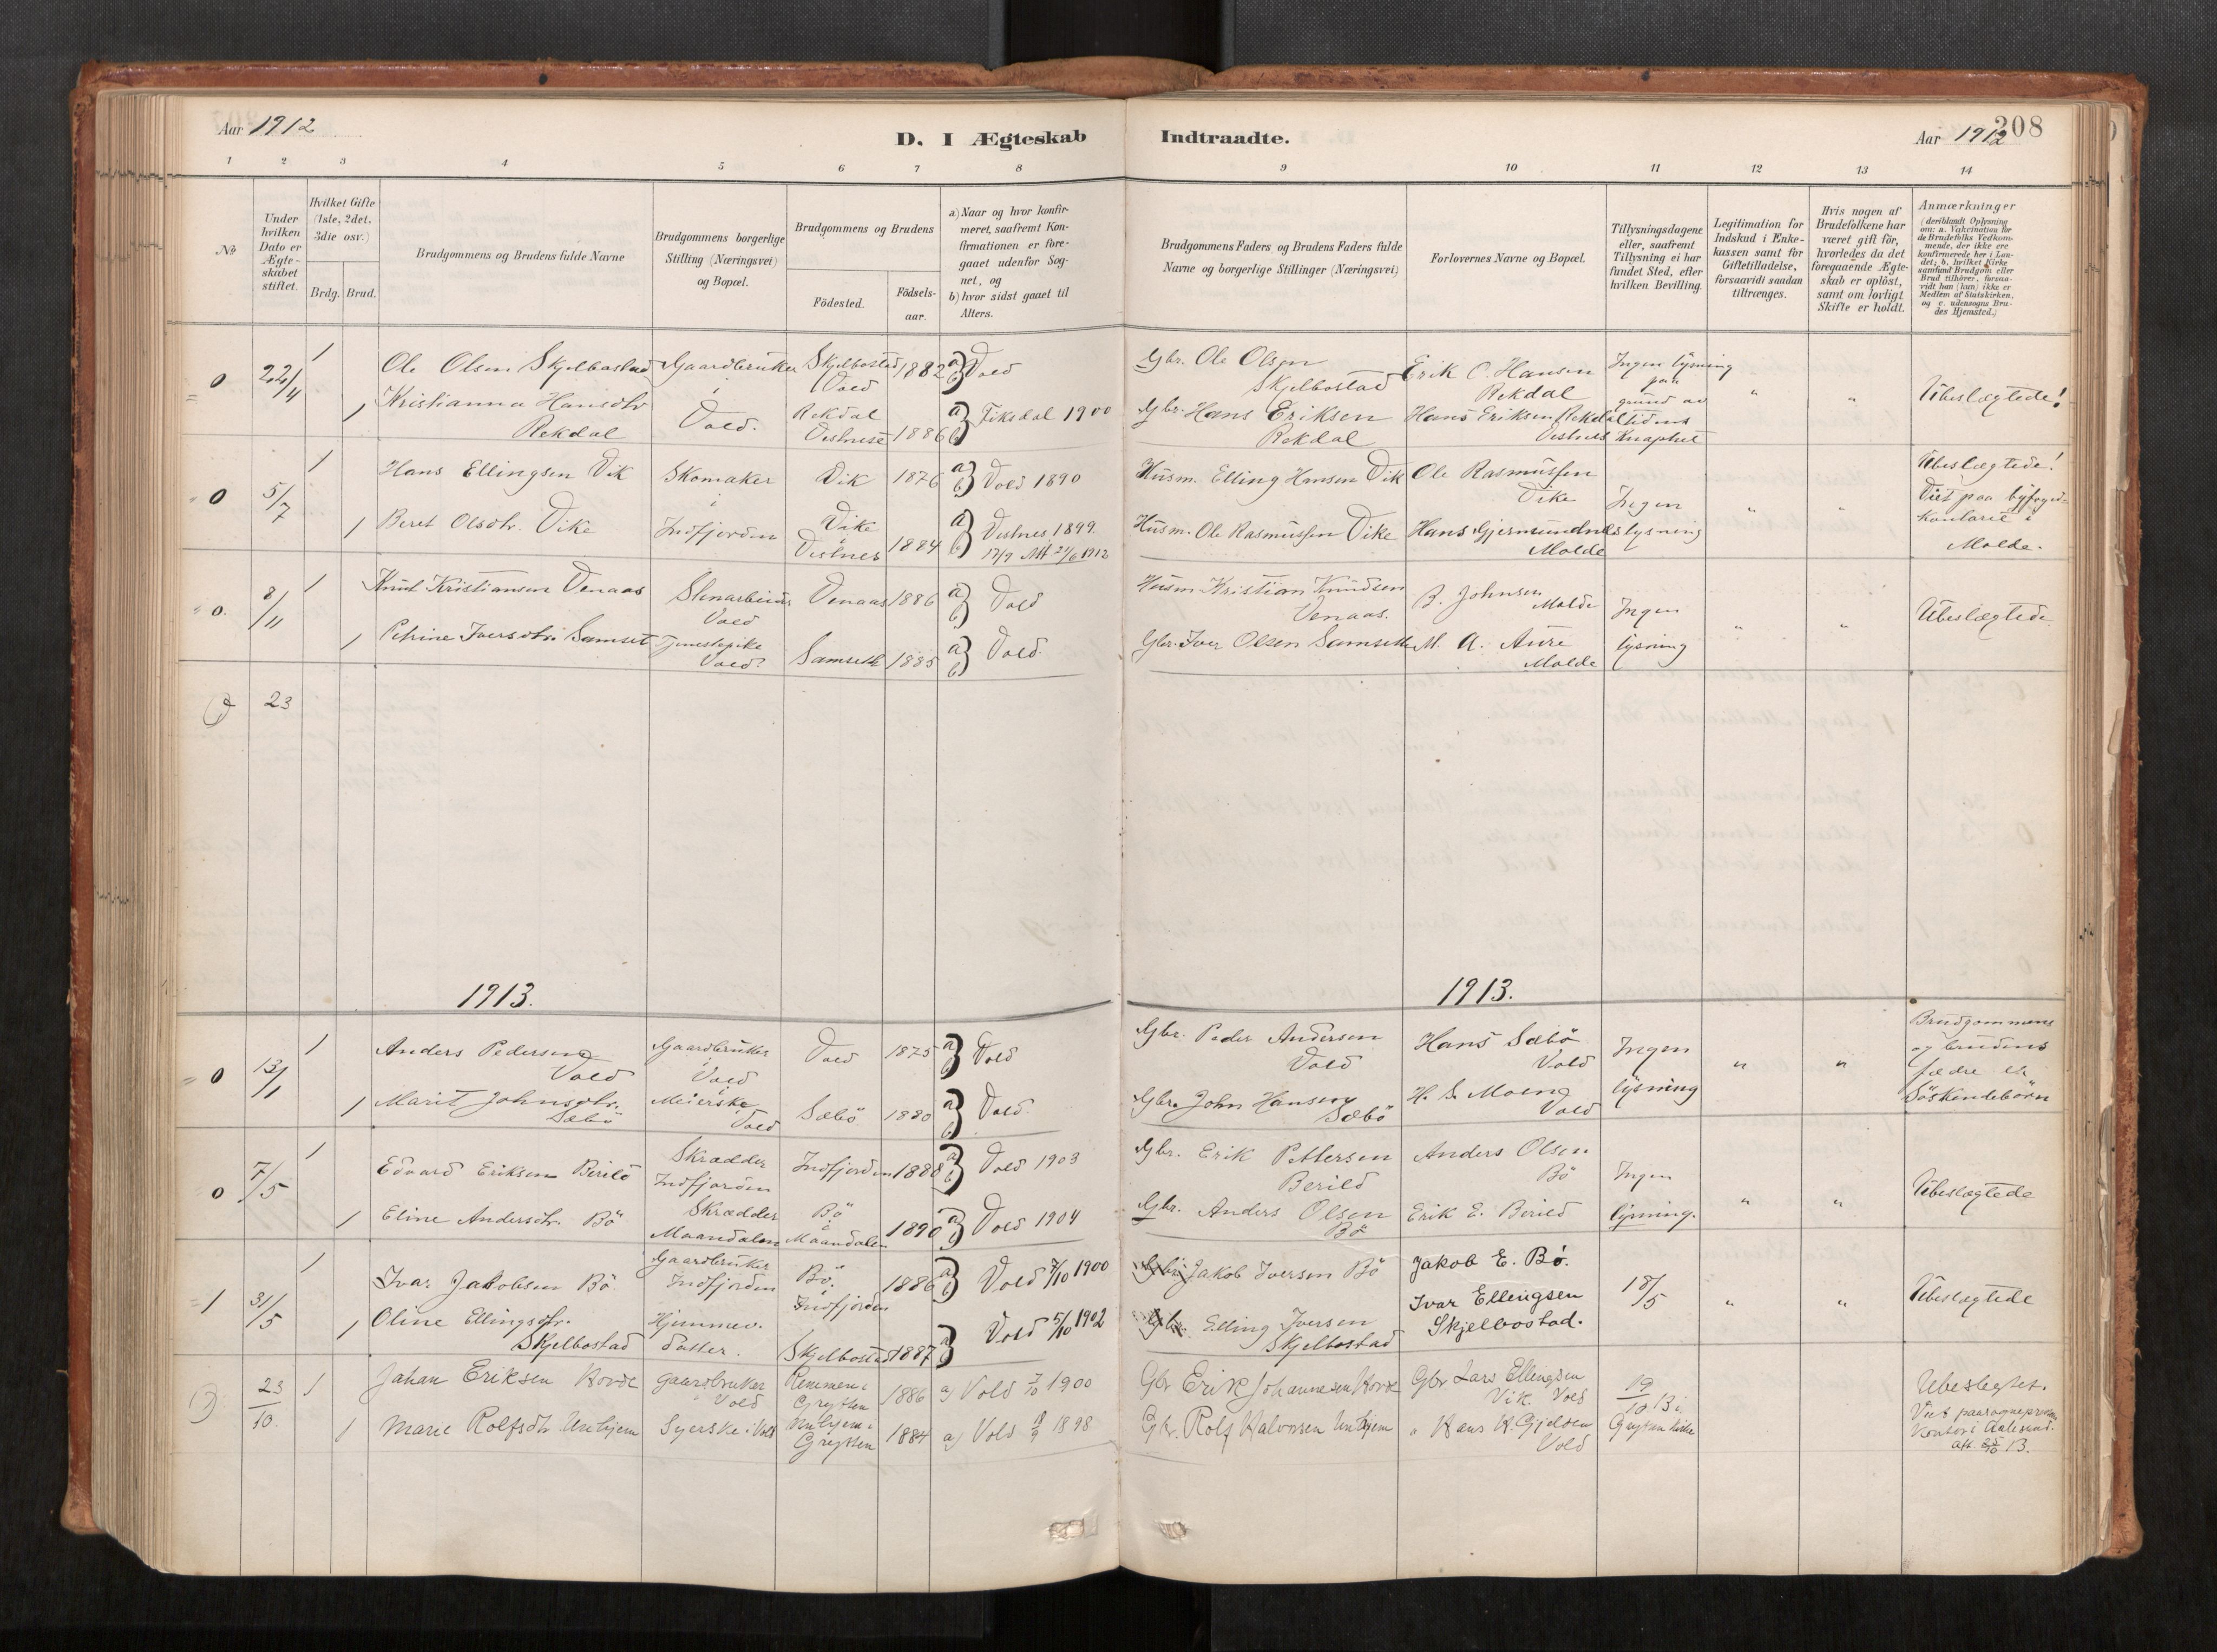 Aar 1912
D. I Ægteskab
Indtraadte.
Aar 1912
208
1 2 3 4 5 6 7 8 9 10 11 12 13 14
No
Under hvilken Dato er Ægteskabet stiftet.
Hvilket Gifte (1ste, 2det, 3die osv.)
Brdg. Brud.
Brudgommens og Brudens fulde Navne
Brudgommens borgerlige Stilling (Næringsvei) og Bopæl.
Brudgommens og Brudens
Födested.
Födsels-aar.
a) Naar og hvor konfir-
meret, saafremt Kon-
firmationen er fore-
gaaet udenfor Sog-
net, og
b) hvor sidst gaaet til
Alters.
Brudgommens Faders og Brudens Faders fulde
Navne og borgerlige Stillinger (Næringsvei)
Forlovernes Navne og Bopæl.
Tillysningsdagene
eller, saafremt
Tillysning ei har
fundet Sted, efter
hvilken Bevilling.
Legitimation for
Indskud i Enke-
kassen samt for
Giftetilladelse,
forsaavidt saadan
tiltrænges.
Hvis nogen af
Brudefolkene har
været gift för,
hvorledes da det
foregaaende Ægte-
skab er oplöst,
samt om lovligt
Skifte er holdt.
Anmærkninger
(deriblandt Oplysning
om: a. Vakcination för
de Brudefolks Vedkom-
mende, der ikke ere
konfirmerede her i Lan-
det; b. hvilket Kirke
samfund Brudgom eller
Brud tilhörer, forsaa-
vidt han (hun) ikke er
Medlem af Statskirken,
og c. udensogns Bru-
des Hjemsted.)
0 22/4 1 Ole Olsen Skjelbostad Gaardbruker i Vold. Skjelbostad Vold 1882 a) b) Vold Gbr. Ole Olsen Skjelbostad Erik C. Hansen Rekdal Ingen lysning paa grund av tidens knaphet " " Ubeslægtede!
1 Kristianna Hansdtr Rekdal Rekdal Vestnes 1886 a) b) Fiksdal 1900 Gbr. Hans Eriksen Rekdal Hans Eriksen Rekdal Vestnes
0 5/7 1 Hans Ellingsen Vik Skomaker i Indfjorden Vik 1876 a) b) Vold 1890 Husm. Elling Hansen Vik Ole Rasmussen Vike Ingen lysning " " Ubeslægtede! Viet paa byfoged-kontoret i Molde.
1 Beret Olsdtr. Vike Vike i Vestnes 1884 a) b) Vestnes 1899. 17/9 Att 21/6 1912 Husm. Ole Rasmussen Vike Hans Gjermundnes Molde
0. 8/11 1 Knut Kristiansen Venaas Stenarbeider Vold Venaas 1886 a) b) Vold Husm Kristian Knudsen Venaas. B. Johnsen Molde Ingen lysning " " Ubeslægtede
1 Petrine Iversdtr. Samset Tjenestepike Vold. Samseth 1885 a) b) Vold. Gbr. Iver Olsen Samseth M. A. Aure Molde
23
1913.
1913.
0 13/1 1 Anders Pedersen Vold Gaardbruker i Vold Vold 1875 a) b) Vold Gbr. Peder Andersen Vold Hans Sæbö Vold Ingen lysning " " Brudgommens og brudens fædre er Söskendebörn
1 Marit Johnsdtr. Sæbö Meierske Vold Sæbö 1880 a) b) Vold. Gbr. John Hansen Sæbö H. S. Moen Vold
0 7/5 1 Edvard Eriksen Berild Skrædder Indfjorden Indfjorden 1888 a) b) Vold 1903 Gbr. Erik Pettersen Berild Anders Olsen Bö Ingen lysning. " " Ubeslægtede
1 Eline Andersdtr. Bö Skrædder Maandalen Bö i Maandalen 1890 a) b) Vold 1904 Gbr. Anders Olsen Bö Erik E. Berild
1 31/5 1 Ivar Jakobsen Bö Gaardbruker Indfjorden Bö. i Indfjorden 1886 a) b) Vold 7/10 1900 Gbr. Jakob Iversen Bö Jakob E. Bö. 18/5 " " Ubeslegtede
1 Oline Ellingsdtr. Skjelbostad Hjemmev. datter. Skjelbostad 1887 Vold 5/10 1902 Gbr. Elling Iversen Skjelbostad Ivar Ellingsen Skjelbostad.
23/10. 1 Johan Eriksen Hovde gaardbruker Vold Remmem i Grytten 1886 a) Vold 7/10 1900 Gbr Erik Johannesen Hovde Gbr Lars Ellingsen Vik. Vold 19/10 13 i Grytten kirke Ubeslegtet.
1 Marie Rolfsdtr Unhjem Syerske i Vold Unhjem i Grytten 1884 a) Vold 18/9 1898 Gbr. Rolf Halvorsen Unhjem " Hans K. Gjelsten Vold Viet paa kontor i Aalesund. att. 25/10 13.